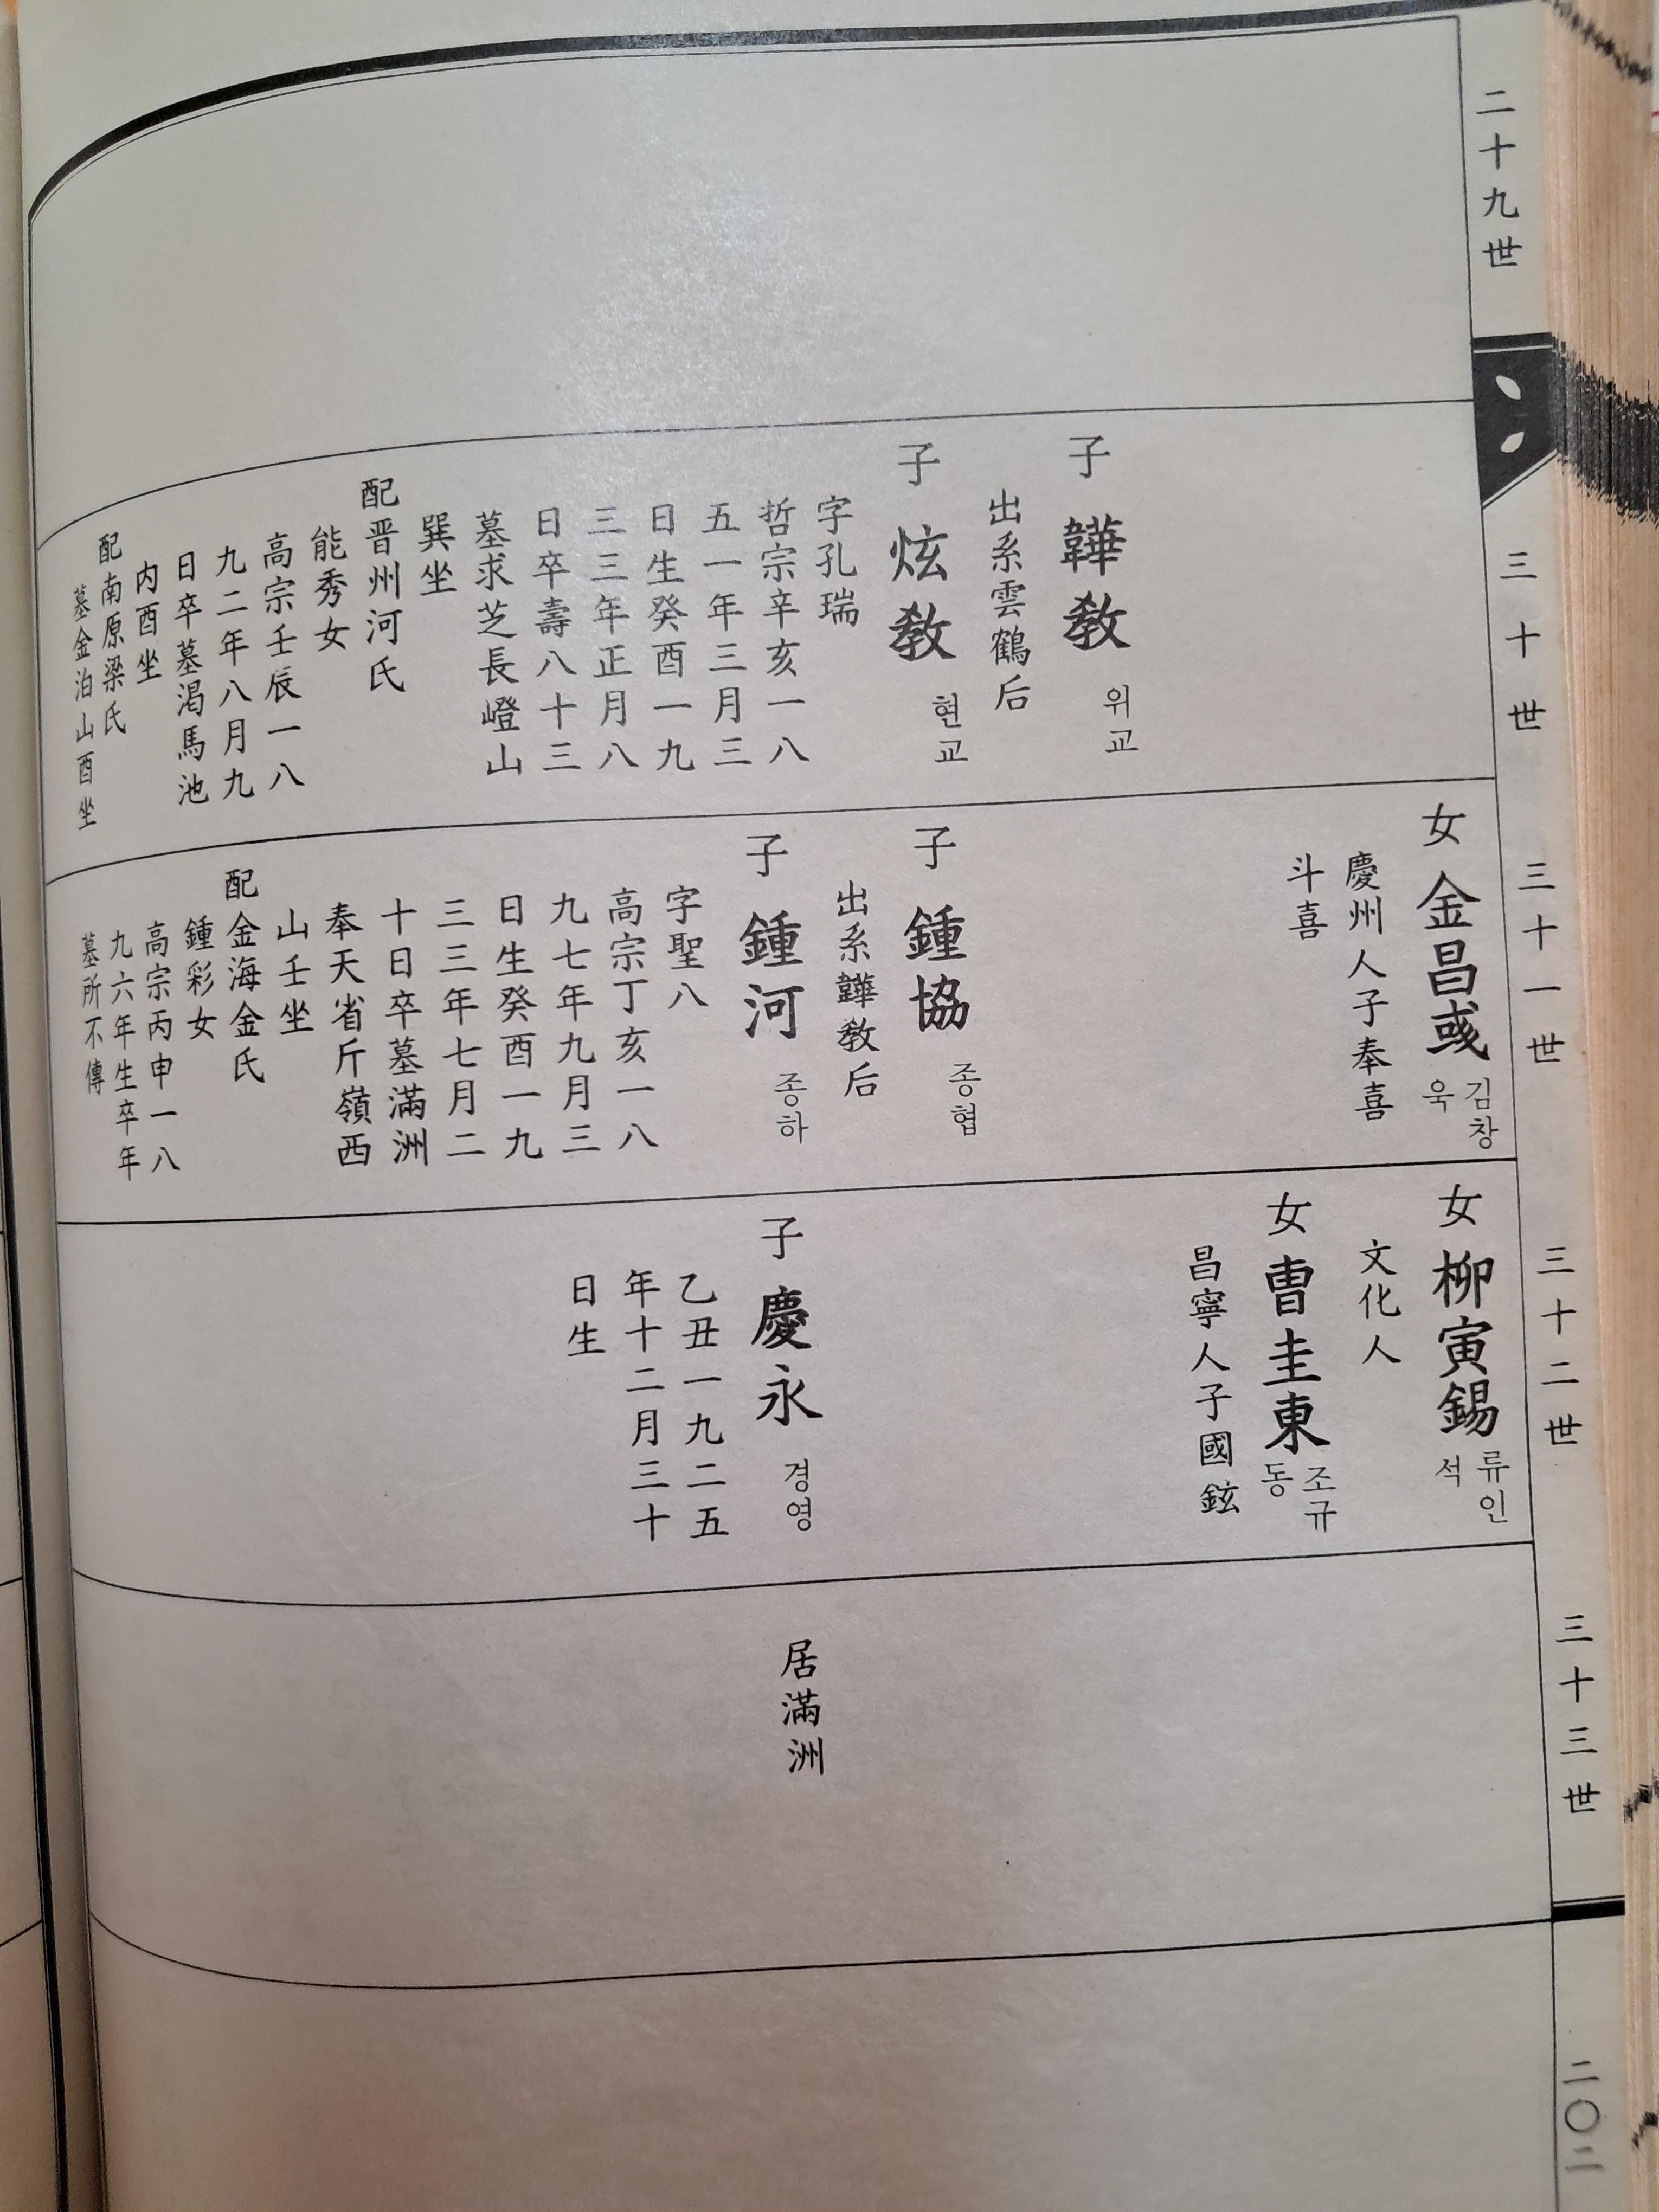 二十九世
三十世
子 韡教 위교
出系雲鶴后
子 炫教 현교
字孔瑞
哲宗辛亥一八
五一年三月三
日生癸酉一九
三三年正月八
日卒壽八十三
墓求芝長嶝山
巽坐
配晋州河氏
能秀女
高宗壬辰一八
九二年八月九
日卒墓渴馬池
内酉坐
配南原梁氏
墓金泊山酉坐
三十一世
女 金昌彧 김창욱
慶州人子奉喜
斗喜
子 鍾協 종협
出系韡教后
子 鍾河 종하
字聖八
高宗丁亥一八
九七年九月三
日生癸酉一九
三三年七月二
十日卒墓滿洲
奉天省斤嶺西
山壬坐
配金海金氏
鍾彩女
高宗丙申一八
九六年生卒年
墓所不傳
三十二世
女 柳寅錫 류인석
文化人
女 曺圭東 조규동
昌寧人子國鉉
子 慶永 경영
乙丑一九二五
年十二月三十
日生
三十三世
居滿洲
二〇二